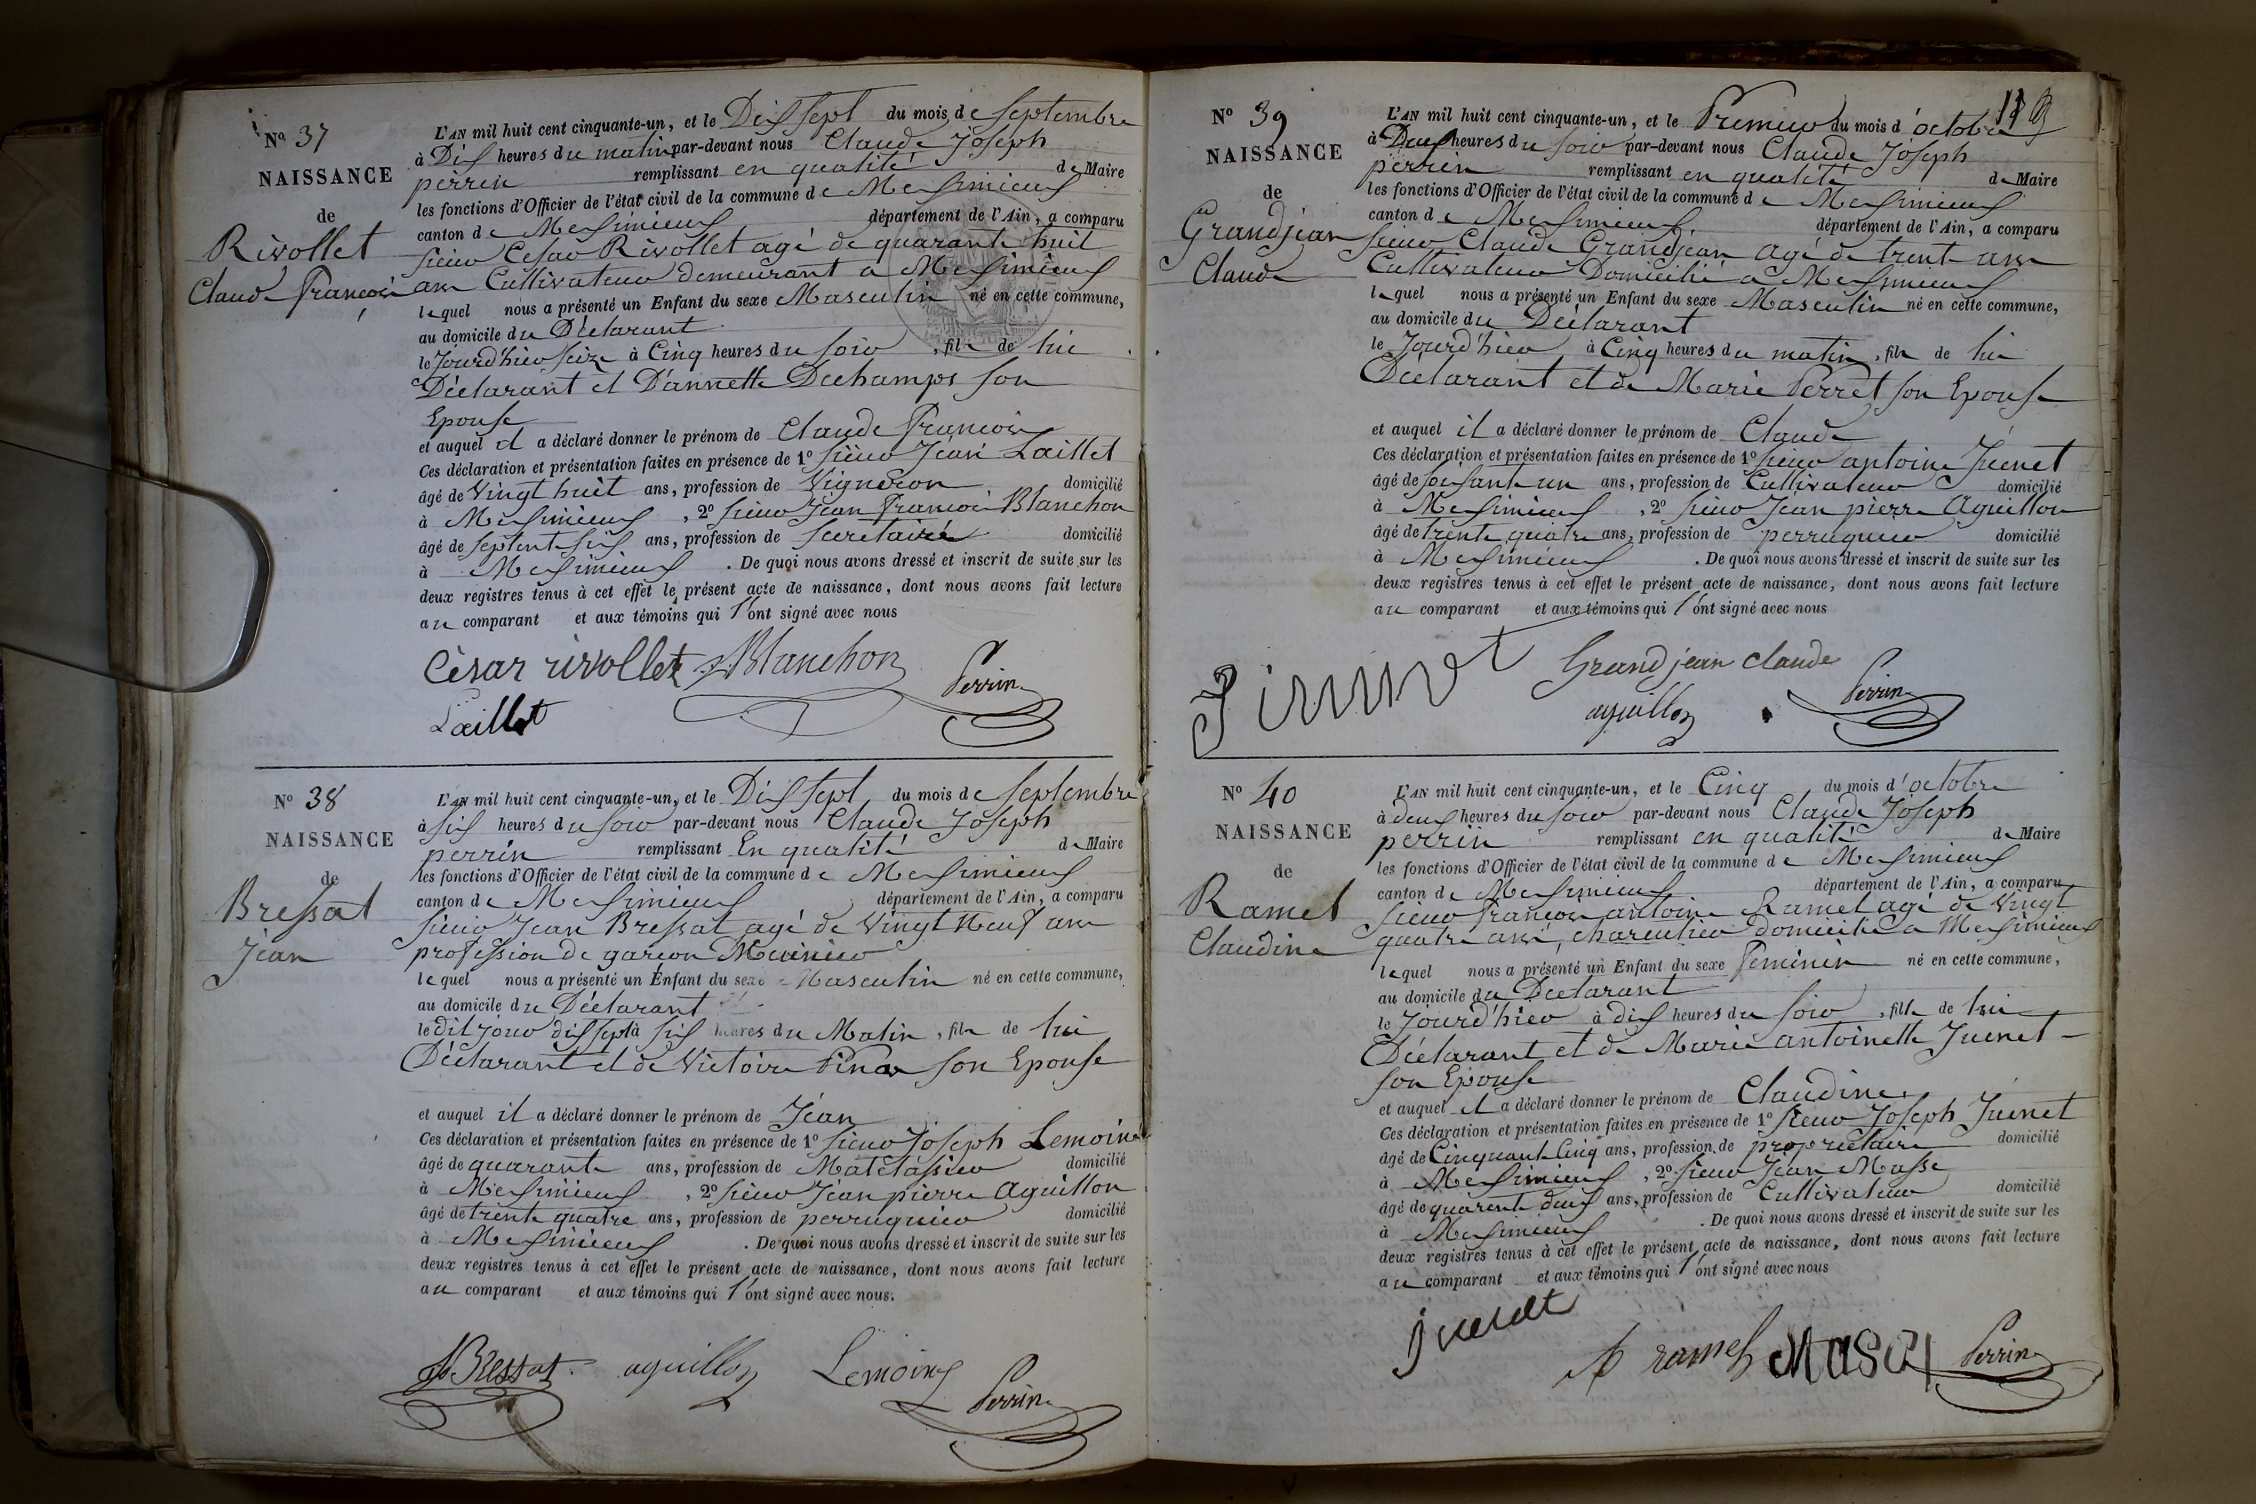 N° 37
NAISSANCE
de
Rivollet
Claude François
L'AN mil huit cent cinquante-un, et le Dix sept du mois de Septembre
à Dix heures du matin par-devant nous Claude Joseph
perrin remplissant en qualité de Maire
les fonctions d'Officier de l'état civil de la commune de Meximieux
canton de Meximieux département de l'Ain, a comparu
sieur Cesar Rivollet agé de quarante huit
ans Cultivateur demeurant a Meximieux
lequel nous a présenté un Enfant du sexe Masculin né en cette commune,
au domicile du Déclarant
le Jourd'hier seize à Cinq heures du soir, fils de lui
Déclarant et D'annette Dechamps son
Epouse
et auquel il a déclaré donner le prénom de Claude François
Ces déclaration et présentation faites en présence de 1° sieur Jean Laillet
âgé de Vingt huit ans, profession de Vigneron domicilié
à Meximieux, 2° sieur Jean François Blanchon
âgé de septente six ans, profession de secretaire domicilié
à Meximieux. De quoi nous avons dressé et inscrit de suite sur les
deux registres tenus à cet effet le présent acte de naissance, dont nous avons fait lecture
au comparant et aux témoins qui l'ont signé avec nous
César rivollet Blanchon
Perrin
Laillet
N° 38
NAISSANCE
de
Bressat
Jean
L'AN mil huit cent cinquante-un, et le Dix sept du mois de Septembre
à six heures du soir par-devant nous Claude Joseph
perrin remplissant En qualité de Maire
les fonctions d'Officier de l'état civil de la commune de Meximieux
canton de Meximieux département de l'Ain, a comparu
sieur Jean Bressat agé de Vingt Neuf ans
profession de garçon Meunier
lequel nous a présenté un Enfant du sexe Masculin né en cette commune,
au domicile du Déclarant
le dit jour dix sept à six heures du Matin, fils de lui
Déclarant et de Victoire son Epouse
et auquel il a déclaré donner le prénom de Jean
Ces déclaration et présentation faites en présence de 1° sieur Joseph Lemoine
âgé de quarante ans, profession de Matelassier domicilié
à Meximieux, 2° sieur Jean pierre Aguillon
âgé de trente quatre ans, profession de perruquier domicilié
à Meximieux. De quoi nous avons dressé et inscrit de suite sur les
deux registres tenus à cet effet le présent acte de naissance, dont nous avons fait lecture
au comparant et aux témoins qui l'ont signé avec nous.
Bressat aguillon Lemoine
Perrin
N° 39
NAISSANCE
de
Grandjean
Claude
L'AN mil huit cent cinquante-un, et le Premier du mois d'octobre
à Deux heures du soir par-devant nous Claude Joseph
perrin remplissant en qualité de Maire
les fonctions d'Officier de l'état civil de la commune de Meximieux
canton de Meximieux département de l'Ain, a comparu
sieur Claude Grandjean agé de trente ans
Cultivateur Domicilié a Meximieux
lequel nous a présenté un Enfant du sexe Masculin né en cette commune,
au domicile du Déclarant
le Jourd'hier à Cinq heures du matin, fils de lui
Déclarant et de Marie Perret son Epouse
et auquel il a déclaré donner le prénom de Claude
Ces déclaration et présentation faites en présence de 1° sieur antoine Juenet
âgé de soixante un ans, profession de Cultivateur domicilié
à Meximieux, 2° sieur Jean pierre Aguillon
âgé de trente quatre ans, profession de perruquier domicilié
à Meximieux. De quoi nous avons dressé et inscrit de suite sur les
deux registres tenus à cet effet le présent acte de naissance, dont nous avons fait lecture
au comparant et aux témoins qui l'ont signé avec nous
Grand jean claude
Perrin
aguillon
N° 40
NAISSANCE
de
Ramel
Claudine
L'AN mil huit cent cinquante-un, et le Cinq du mois d'octobre
à deux heures du soir par-devant nous Claude Joseph
perrin remplissant en qualité de Maire
les fonctions d'Officier de l'état civil de la commune de Meximieux
canton de Meximieux département de l'Ain, a comparu
sieur françois antoine Ramel agé de Vingt
quatre ans, charcutier domicilié a Meximieux
lequel nous a présenté un Enfant du sexe Feminin né en cette commune,
au domicile du Déclarant
le Jourd'hier à dix heures du soir, fille de lui
Déclarant et de Marie antoinette Juenet
son Epouse
et auquel il a déclaré donner le prénom de Claudine
Ces déclaration et présentation faites en présence de 1° sieur Joseph Juenet
âgé de Cinquante Cinq ans, profession de propriétaire domicilié
à Meximieux, 2° sieur Jean Masse
âgé de quarente deux ans, profession de Cultivateur domicilié
à Meximieux. De quoi nous avons dressé et inscrit de suite sur les
deux registres tenus à cet effet le présent acte de naissance, dont nous avons fait lecture
au comparant et aux témoins qui l'ont signé avec nous
juenet
A ramel Perrin